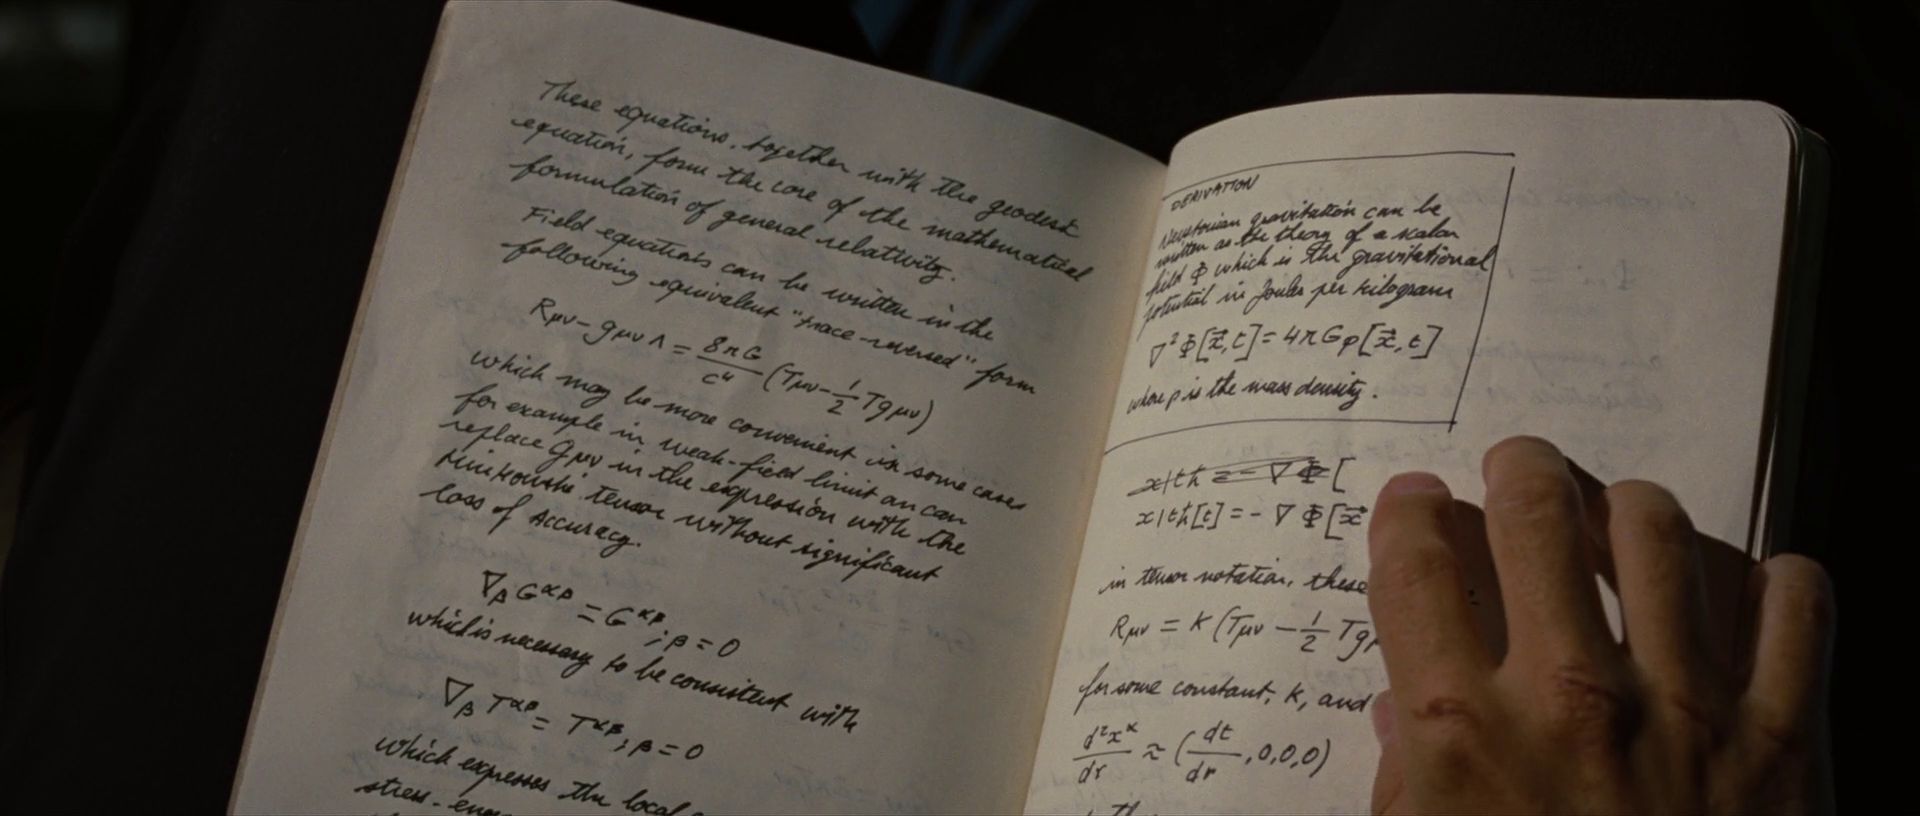 These equations, together with the geodesic
equation, form the core of the mathematical
formulation of general relativity.
Field equations can be written in the
following equivalent "trace-reversed" form
Rμν - gμν Λ = 8πG/c⁴ (Tμν - 1/2 Tgμν)
which may be more convenient in some cases
for example in weak-field limit an can
replace gμν in the expression with the
Minkowski tensor without significant
loss of accuracy.
∇β G^αβ = G^αβ ; β = 0
which is necessary to be consistent with
∇β T^αβ = T^αβ ; β = 0
which expresses the local
stress-
DERIVATION
Newtonian gravitation can be
written as the theory of a scalar
field Φ which is the gravitational
potential in Joules per kilogram
∇²Φ[x⃗,t] = 4πGρ[x⃗,t]
where ρ is the mass density.
= -∇Φ[
[t] = -∇Φ[x⃗
in tensor notation, these
Rμν = K (Tμν - 1/2 Tg
for some constant, K, and
d²x^α/dτ ≈ (dt/dτ, 0, 0, 0)